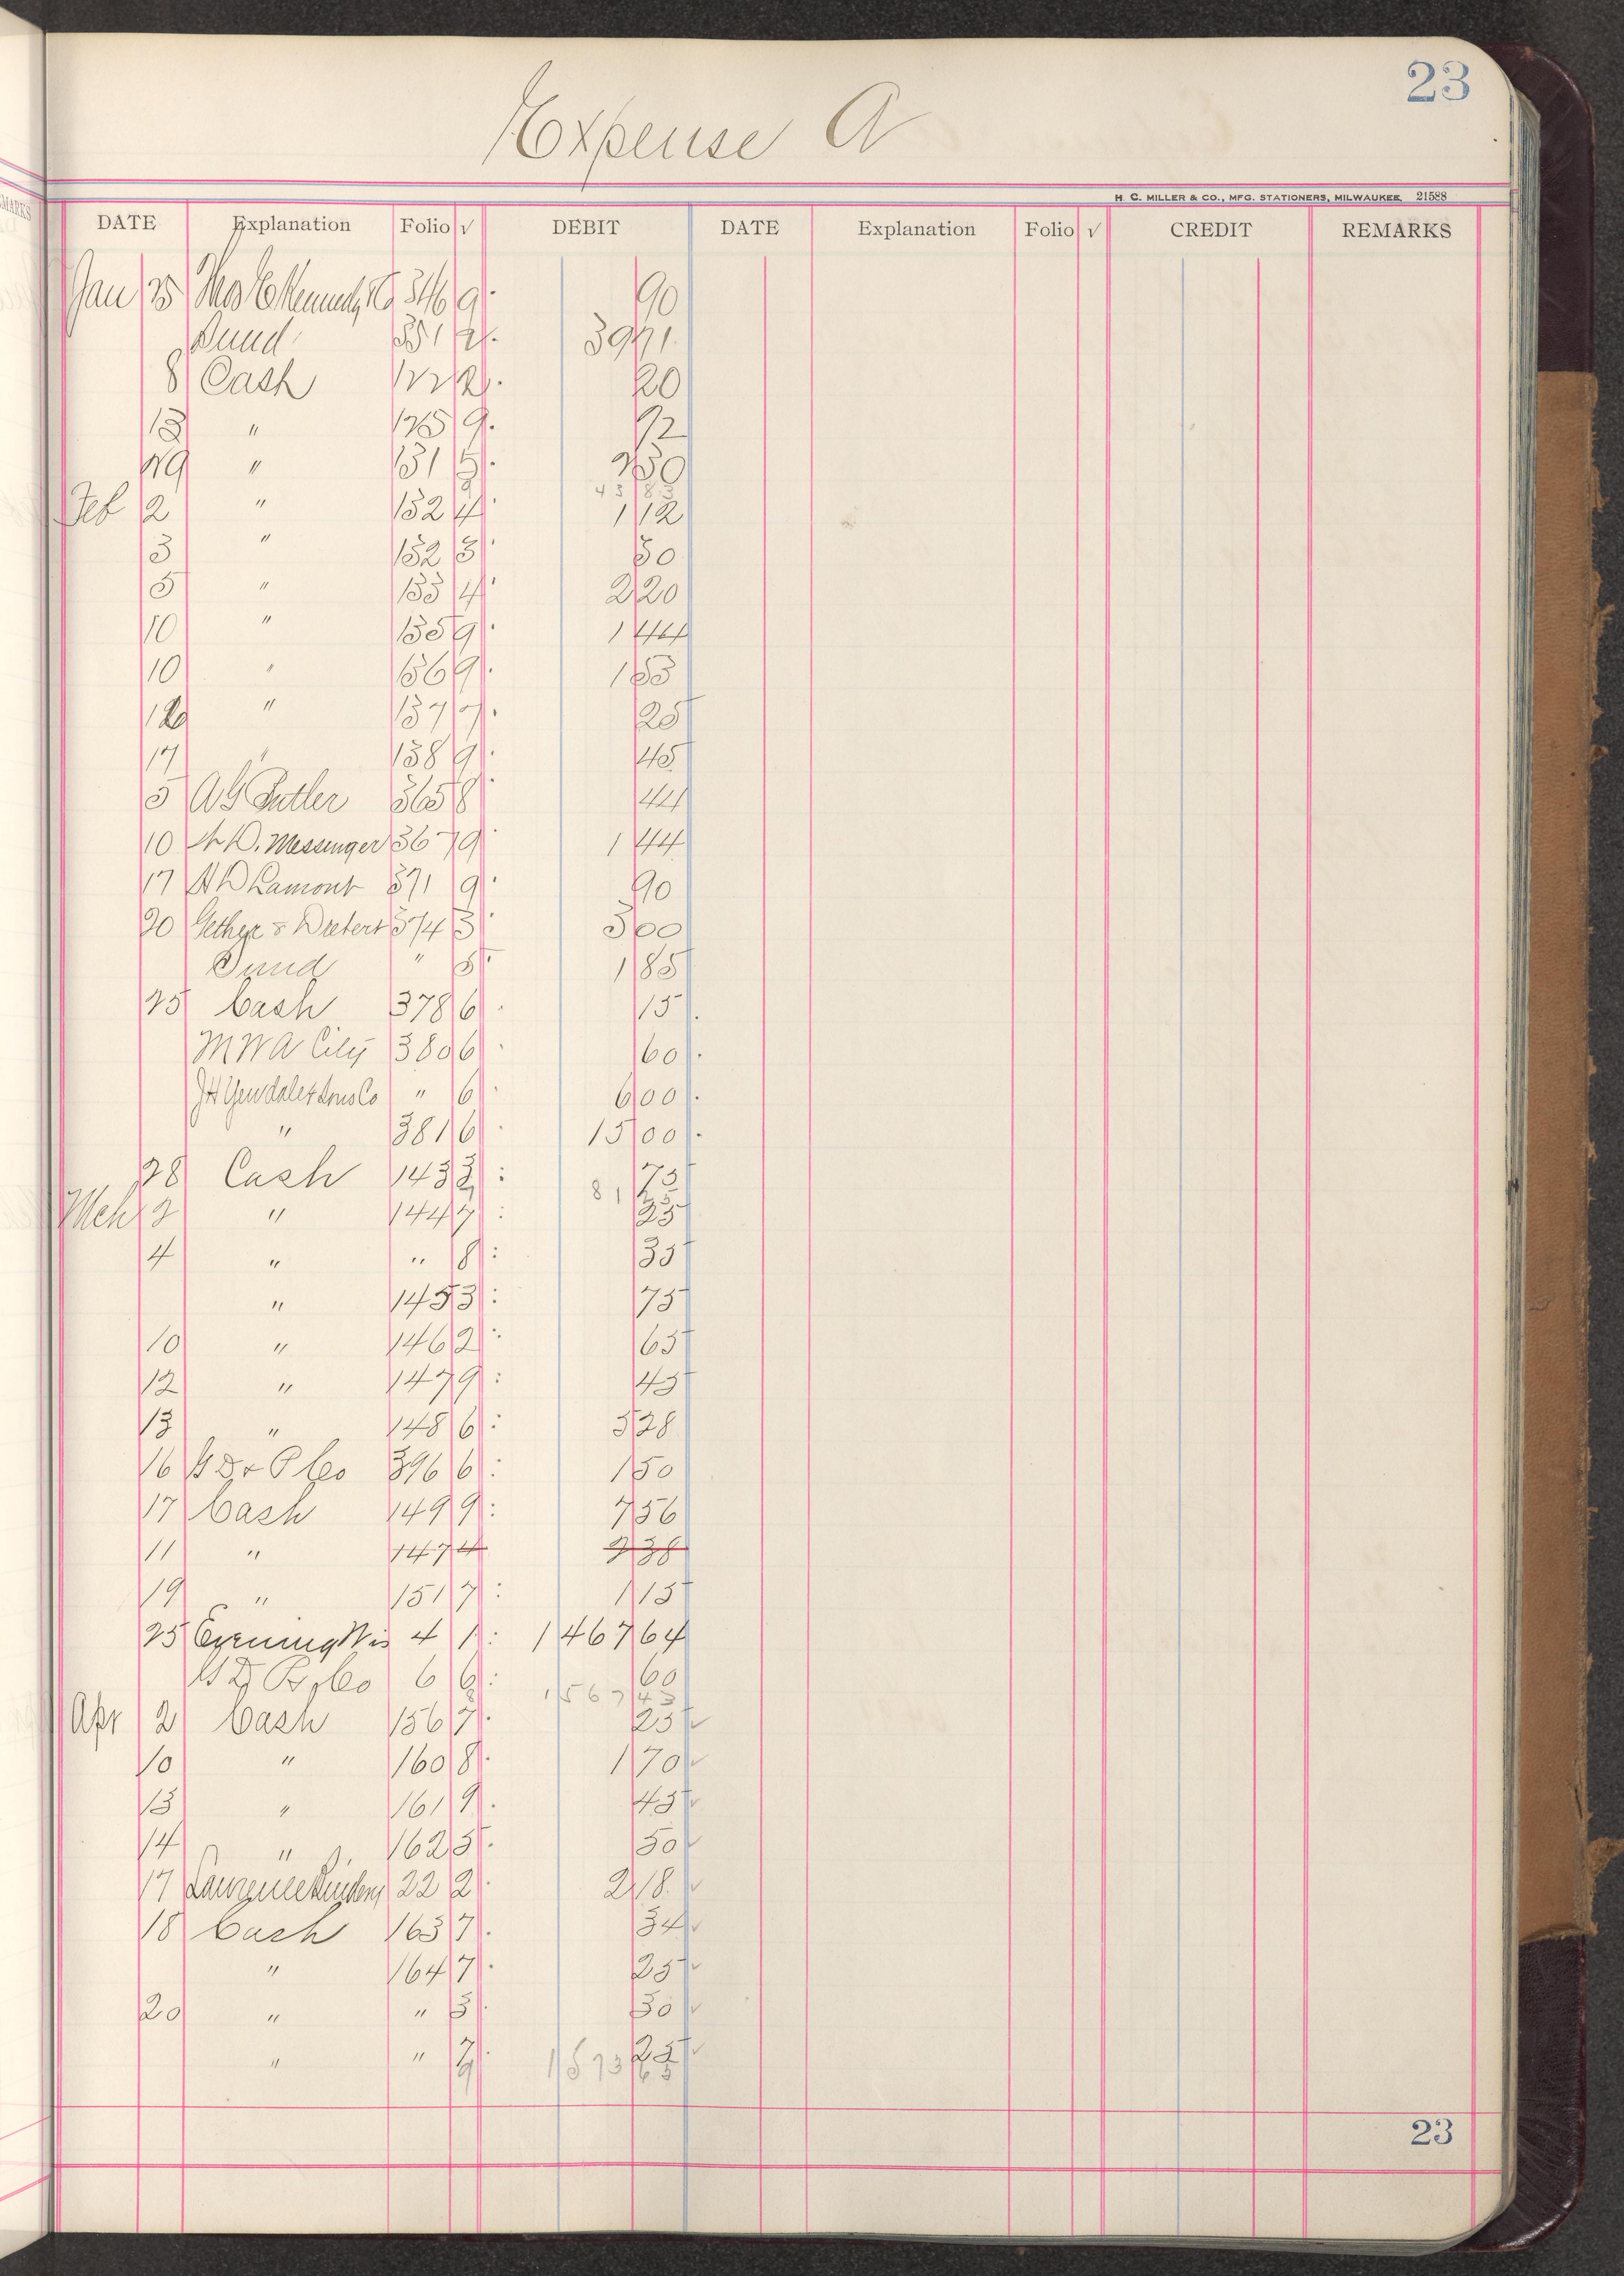 23
Expense A
H. C. MILLER & CO., MFG. STATIONERS, MILWAUKEE. 21588
DATE Explanation Folio √ DEBIT DATE Explanation Folio √ CREDIT REMARKS
Jan 25 346 9 90
Sund 351 2 39 71
8 Cash 122 2 20
13 " 125 9 72
29 " 131 5 2 50
43 83
Feb 2 " 132 4 1 12
3 " 132 3 50
5 " 133 4 2 20
10 " 135 9 1 44
10 " 136 9 1 53
" 137 7 25
17 " 138 9 45
5 A G 365 8 44
10 Messenger 367 9 1 44
17 H D Lamont 371 9 90
20 Gether & 374 3 3 00
Sund " 5 1 85
25 Cash 378 6 15
M W A City 380 6 60
J H Yewdale & Sons Co " 6 6 00
" 381 6 15 00
28 Cash 143 3 75
81
Mch 2 " 144 7 25
4 " " 8 35
" 145 3 75
10 " 146 2 65
12 " 147 9 45
13 " 148 6 5 28
16 G D & P Co 396 6 1 50
17 Cash 149 9 7 56
11 " 147 4 2 38
19 " 151 7 1 15
25 Evening Wis 4 1 1 467 64
G D P Co 6 6 60
1 567 43
Apr 2 Cash 156 7 25 √
10 " 160 8 1 70 √
13 " 161 9 45 √
14 " 162 5 50 √
17 Lawrence 22 2 2 18 √
18 Cash 163 7 34 √
" 164 7 25 √
20 " " 3 50 √
" " 7 25 √
1 573 65
23